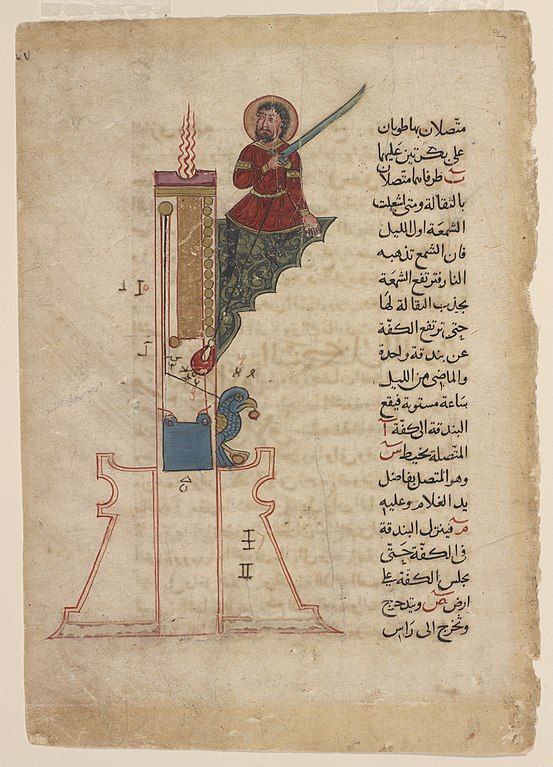 متصلان بها
على بكرتين عليهما
طرفاهما متصلان
بالثقالة ومتى اشعلت
الشمعة اول الليل
فان الشمع تذهبه
النار فترتفع الشمعة
بجذب الثقالة لها
حتى ترتفع الكفة
عن بندقة واحدة
والماضى من الليل
ساعة مستوية فيقع
البندقة الى كفة آ
المتصلة بخيط س
وهو المتصل بمفاصل
يد الغلام وعليه
م فينزل البندقة
فى الكفة حتى
يجلس الكفة على
ارض ص ويتدحرج
وتخرج الى راس